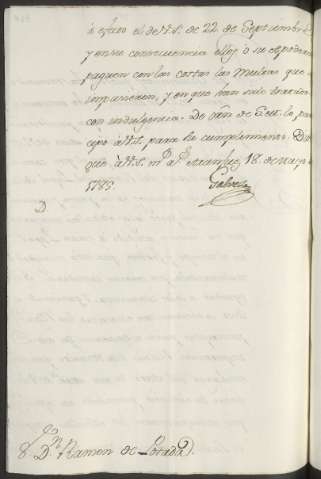 efecto el de V.S. de 22 de Septiembre
y en su consecuencia ellos o su apoderado
paguen con las costas las multas que
impusieron, y en que han sido tratados
con indulgencia. De orn de
cipo à V.S. para su cumplimiento. Dios
gue à V.S. m.s a.s Aranjuez, 18 de Mayo
1785.
Galvez
D
S.or D.n Ramon de Posada.